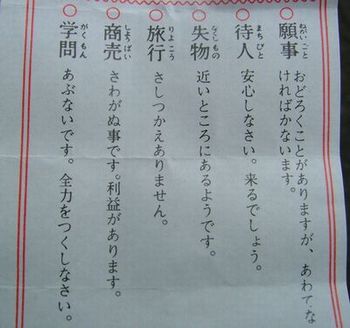 願事 ねがいごと
おどろくことがありますが、あわてな
ければかないます。
待人 まちびと
安心しなさい。来るでしょう。
失物 なくしもの
近いところにあるようです。
旅行 りょこう
さしつかえありません。
商売 しょうばい
さわがぬ事です。利益があります。
学問 がくもん
あぶないです。全力をつくしなさい。